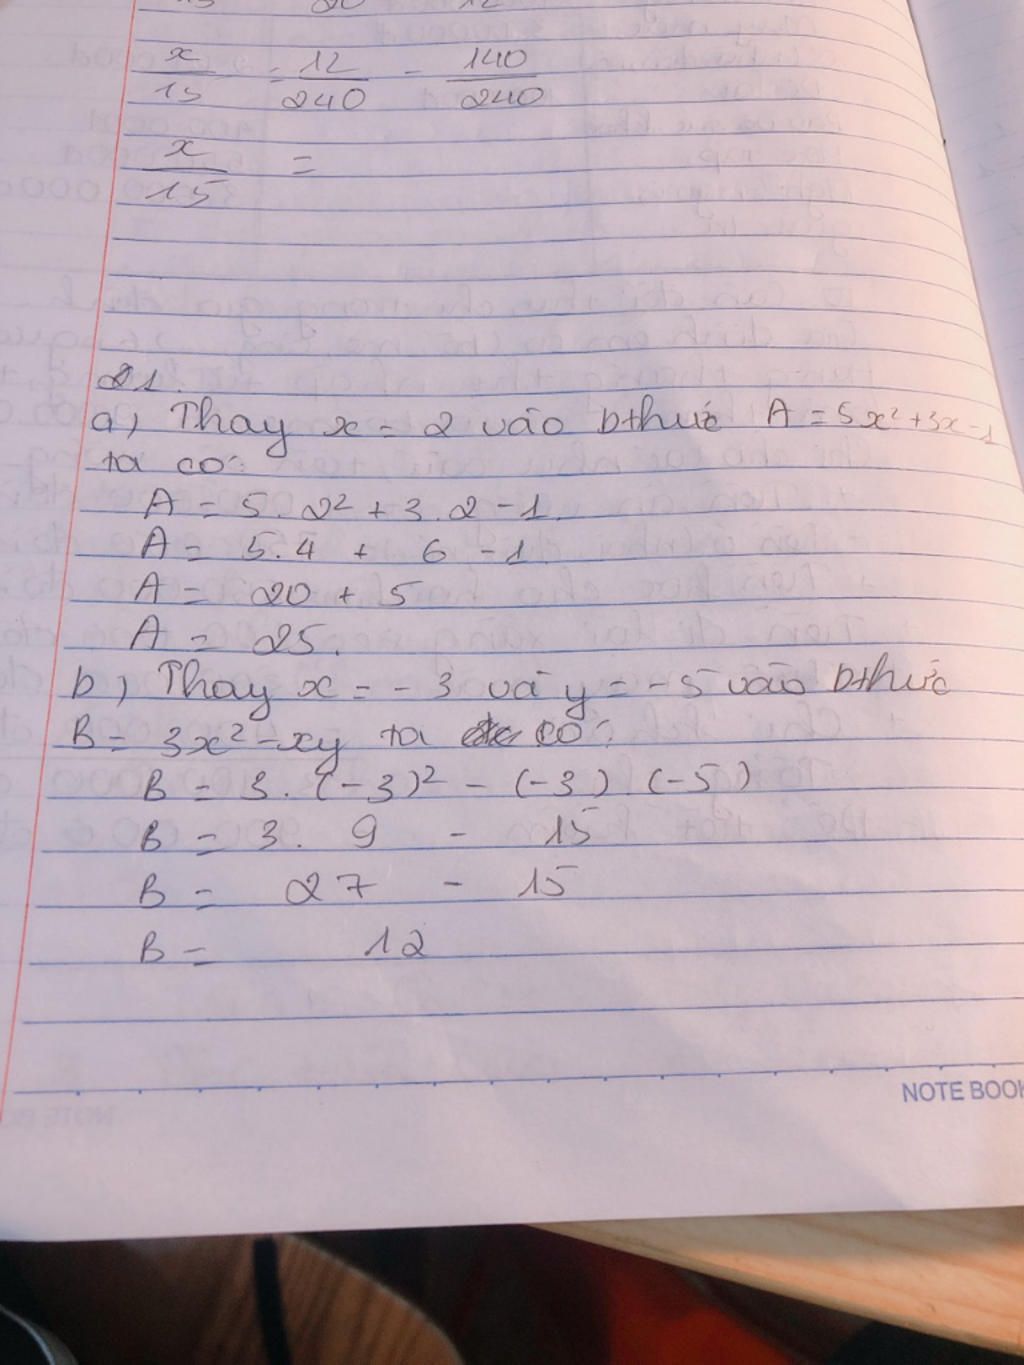 x/15 = 12/240 - 140/240
x/15 =
21.
a, Thay x = 2 vào bthức A = 5x² + 3x - 1
ta có:
A = 5. 2² + 3. 2 - 1.
A = 5.4 + 6 - 1.
A = 20 + 5
A = 25.
b, Thay x = - 3 và y = - 5 vào bthức
B = 3x² - xy ta có:
B = 3. (-3)² - (-3).(-5)
B = 3. 9 - 15
B = 27 - 15
B = 12
NOTE BOOK